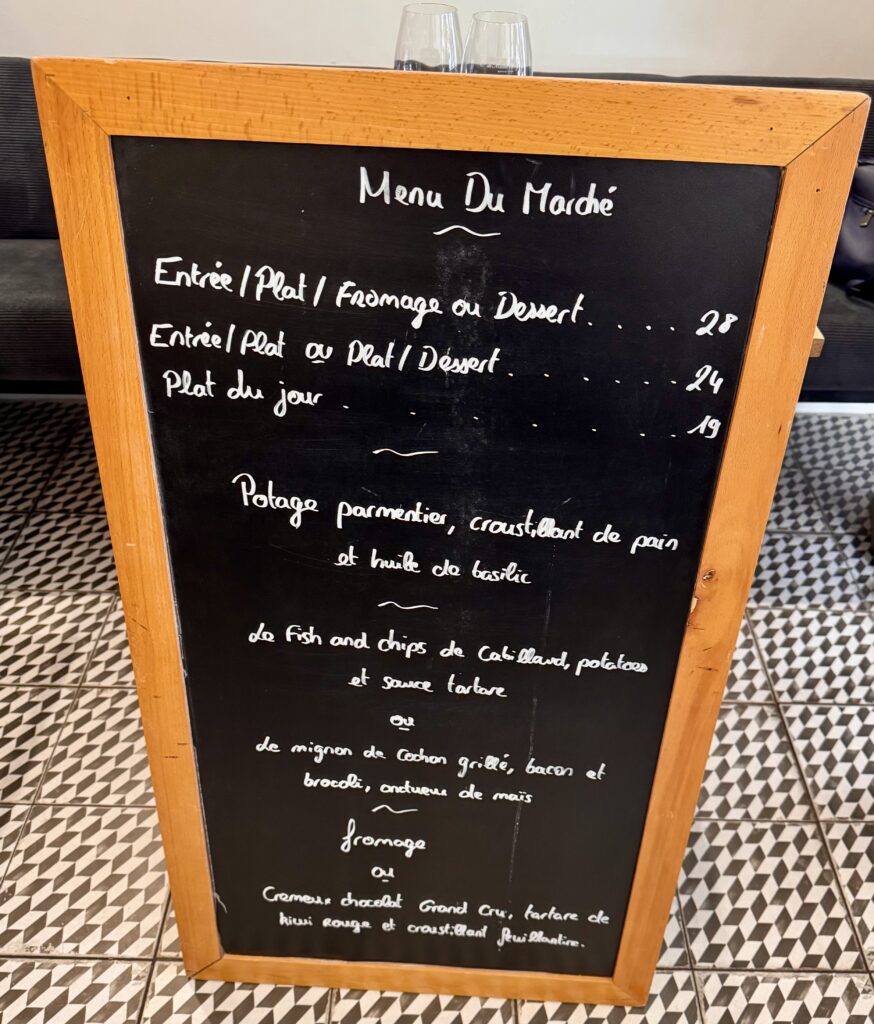 Menu Du Marché
Entrée/Plat/ Fromage ou Dessert..... 28
Entrée/Plat ou Plat/Déssert....... 24
Plat du jour....... 19
Potage parmentier, croustillant de pain
et huile de basilic
Le Fish and chips de Cabillaud, potatoes
et sauce tartare
ou
Le mignon de Cochon grillé, bacon et
brocoli, onctueux de maïs
fromage
ou
Cremeux chocolat Grand Cru, tartare de
kiwi rouge et croustillant feuillantine.